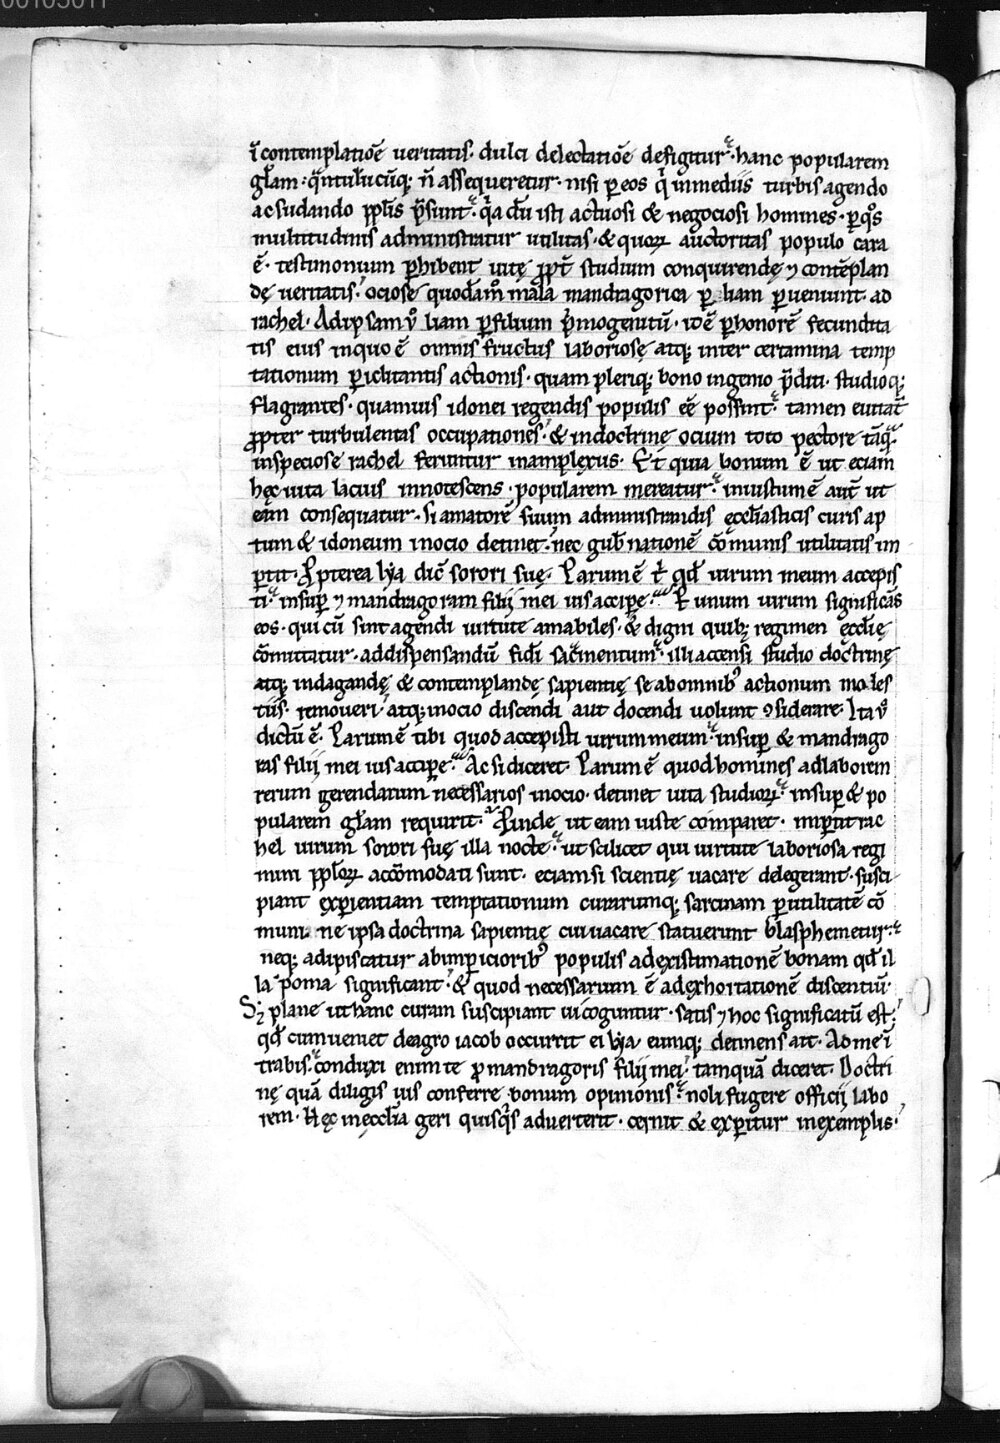 ī contemplatiōe ueritatis· dulci delectatiōe defigitur· hanc popularem
gl̄am· q̄ntulacūq; n̄ assequeretur· nisi p̲ eos q̇ in mediis turbis agendo
ac sudando ppl̄is p̄sunt· q̇a dū isti actuosi & negociosi homines· p̲ q°s
multitudinis administratur utilitas· & quoꝝ auctoritas populo cara
ē· testimonium p̲hibent uitę ꝓpt̄ studium conquirendę ⁊ contēplan
dę ueritatis· ociose quodam̊ mala mandragorica p̲ liam p̲ueniunt· ad
rachel· Ad ipsam ů liam p̲ filium p̄mogenitū· id ē p̲ honorē fecundita
tis eius in quo ē omnis fructus laboriosę atq; inter certamina temp
tationum p̲iclitantis actionis· quam pleriq; bono ingenio p̄diti· studioq;
flagrantes· quamuis idonei regendis populis eē possint· tamen euitāt
ꝓpter turbulentas occupationes· & in doctrinę ocium toto pectore tāq̄
in speciose rachel feruntur in amplexus· Et quia bonum ē ut eciam
hęc uita lacius innotescens· popularem mereatur· iniustum ē aut̄ ut
eam consequatur· si amatorē suum administrandis ęccl̄iasticis curis ap
tum & idoneum in ocio detinet· nec gub̄nationē cōmunis utilitatis im
p̲tit· Ꝓpterea lẏa dic̄ sorori suę· Parum ē t̄ qd̄ uirum meum accepis
ti· insup̲ ⁊ mandragoram filij mei uis accipe· P unum uirum significās
eos· qui cū sint agendi uirtute amabiles· & digni quib; regimen eccl̄ię
cōmittatur· ad dispensandū fidi sac̄mentum· illi accensi studio doctrinę
atq; indagandę & contemplandę sapientię se ab omnib᾽ actionum moles
tiis· remoueri atq; in ocio discendi aut docendi uolunt ꝯsiderare· Ita ů
dictū ē· Parum ē tibi quod accepisti uirum meum· insup̲ & mandrago
ras filij mei uis accipe· Ac si diceret· Parum ē quod homines ad laborem
rerum gerendarum necessarios in ocio· detinet uita studioꝝ· insup̲ & po
pularem gl̄am requirit· Proinde ut eam iuste comparet· imp̲tit rac
hel uirum sorori suę illa nocte· ut scilicet qui uirtute laboriosa regi
mini ppl̄oꝝ accōmodati sunt· eciam si scientię uacare delegerant· susci
piant exp̲ientiam temptationum curarumq; sarcinam p̲ utilitatē cō
muni· ne ipsa doctrina sapientię cui uacare statuerunt blasphemetur·
neq; adipiscatur ab imp̲icioribꝰ populis ad existimationē bonam qd̄ il
la poma significant· & quod necessarium ē ad exhortationē discentiū·
Sꝫ plane ut hanc curam suscipiant ui coguntur· satis ⁊ hoc significatū est·
qd̄ cum ueniet de agro iacob occurrit ei lẏa· eumq; detinens ait· Ad me ī
trabis· conduxi enim te p̲ mandragoris filij mei· tamquā diceret· Doctri
nę quā diligis uis conferre bonum opinionis· noli fugere officij labo
rem· Hęc in ęccl̄ia geri quisq̇s aduerterit· cernit & exp̲itur in exemplis·